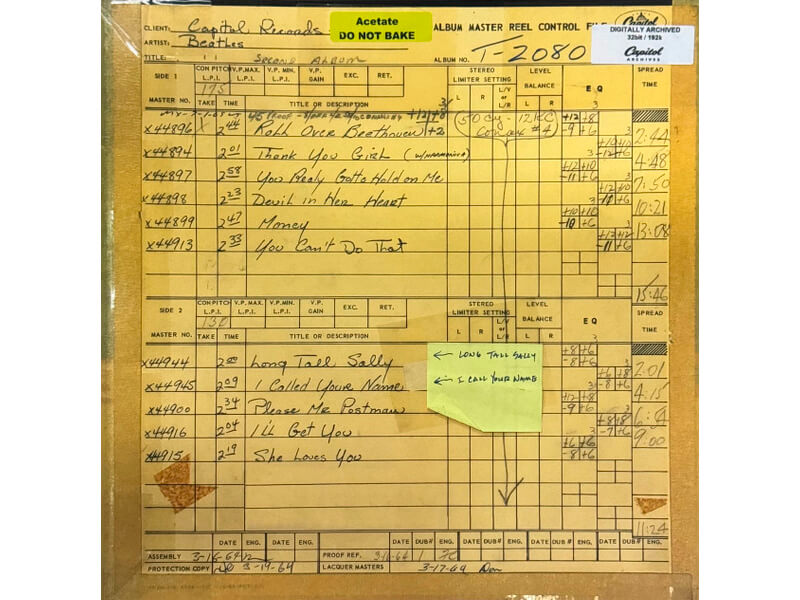 CLIENT: Capitol Records
Acetate
DO NOT BAKE
ALBUM MASTER REEL CONTROL FILE
Capitol
ARTIST: Beatles
ALBUM NO. T-2080
DIGITALLY ARCHIVED
32bit / 192k
Capitol
ARCHIVES
TITLE: " " Second Album
SIDE 1 CON PITCH L.P.I. V.P.MAX. L.P.I. V.P.MIN. L.P.I. V.P. GAIN EXC. RET. STEREO LIMITER SETTING L R L/V or L/R LEVEL BALANCE EQ SPREAD TIME
175
MASTER NO. TAKE TIME TITLE OR DESCRIPTION
x44896 2 44 Roll Over Beethoven +2 (50 cy - 12 KC -9 +6 2:44
x44894 2 01 Thank You Girl (w/Harmonica) -12 +6 4:48
x44897 2 58 You Realy Gotta Hold on Me -11 +6 7:50
x44898 2 23 Devil in Her Heart -11 +6 10:21
x44899 2 47 Money +10 +10 -10 +6 13:08
x44913 2 33 You Can't Do That +12 +12 -11 +6
15:46
SIDE 2 CON PITCH L.P.I. V.P.MAX. L.P.I. V.P.MIN. L.P.I. V.P. GAIN EXC. RET. STEREO LIMITER SETTING L R L/V or L/R LEVEL BALANCE EQ SPREAD TIME
130
MASTER NO. TAKE TIME TITLE OR DESCRIPTION
x44944 2 00 Long Tall Sally ← LONG TALL SALLY +8 +6 -8 +6 2:01
x44945 2 09 I Called Your Name ← I CALL YOUR NAME +6 +8 -8 +6 4:15
x44900 2 34 Please Mr Postman +12 +8 -9 +6
x44916 2 04 I'll Get You +8 +8 -7 +6 9:00
x44915 2 19 She Loves You +6 +6 -8 +6
11:24
DATE ENG. DATE ENG. DATE DUB# ENG. DATE DUB# ENG. DATE DUB# ENG. DATE DUB# ENG.
ASSEMBLY 3-16-64 PROOF REF. 3-16-64 1
PROTECTION COPY 3-19-64 LACQUER MASTERS 3-17-64